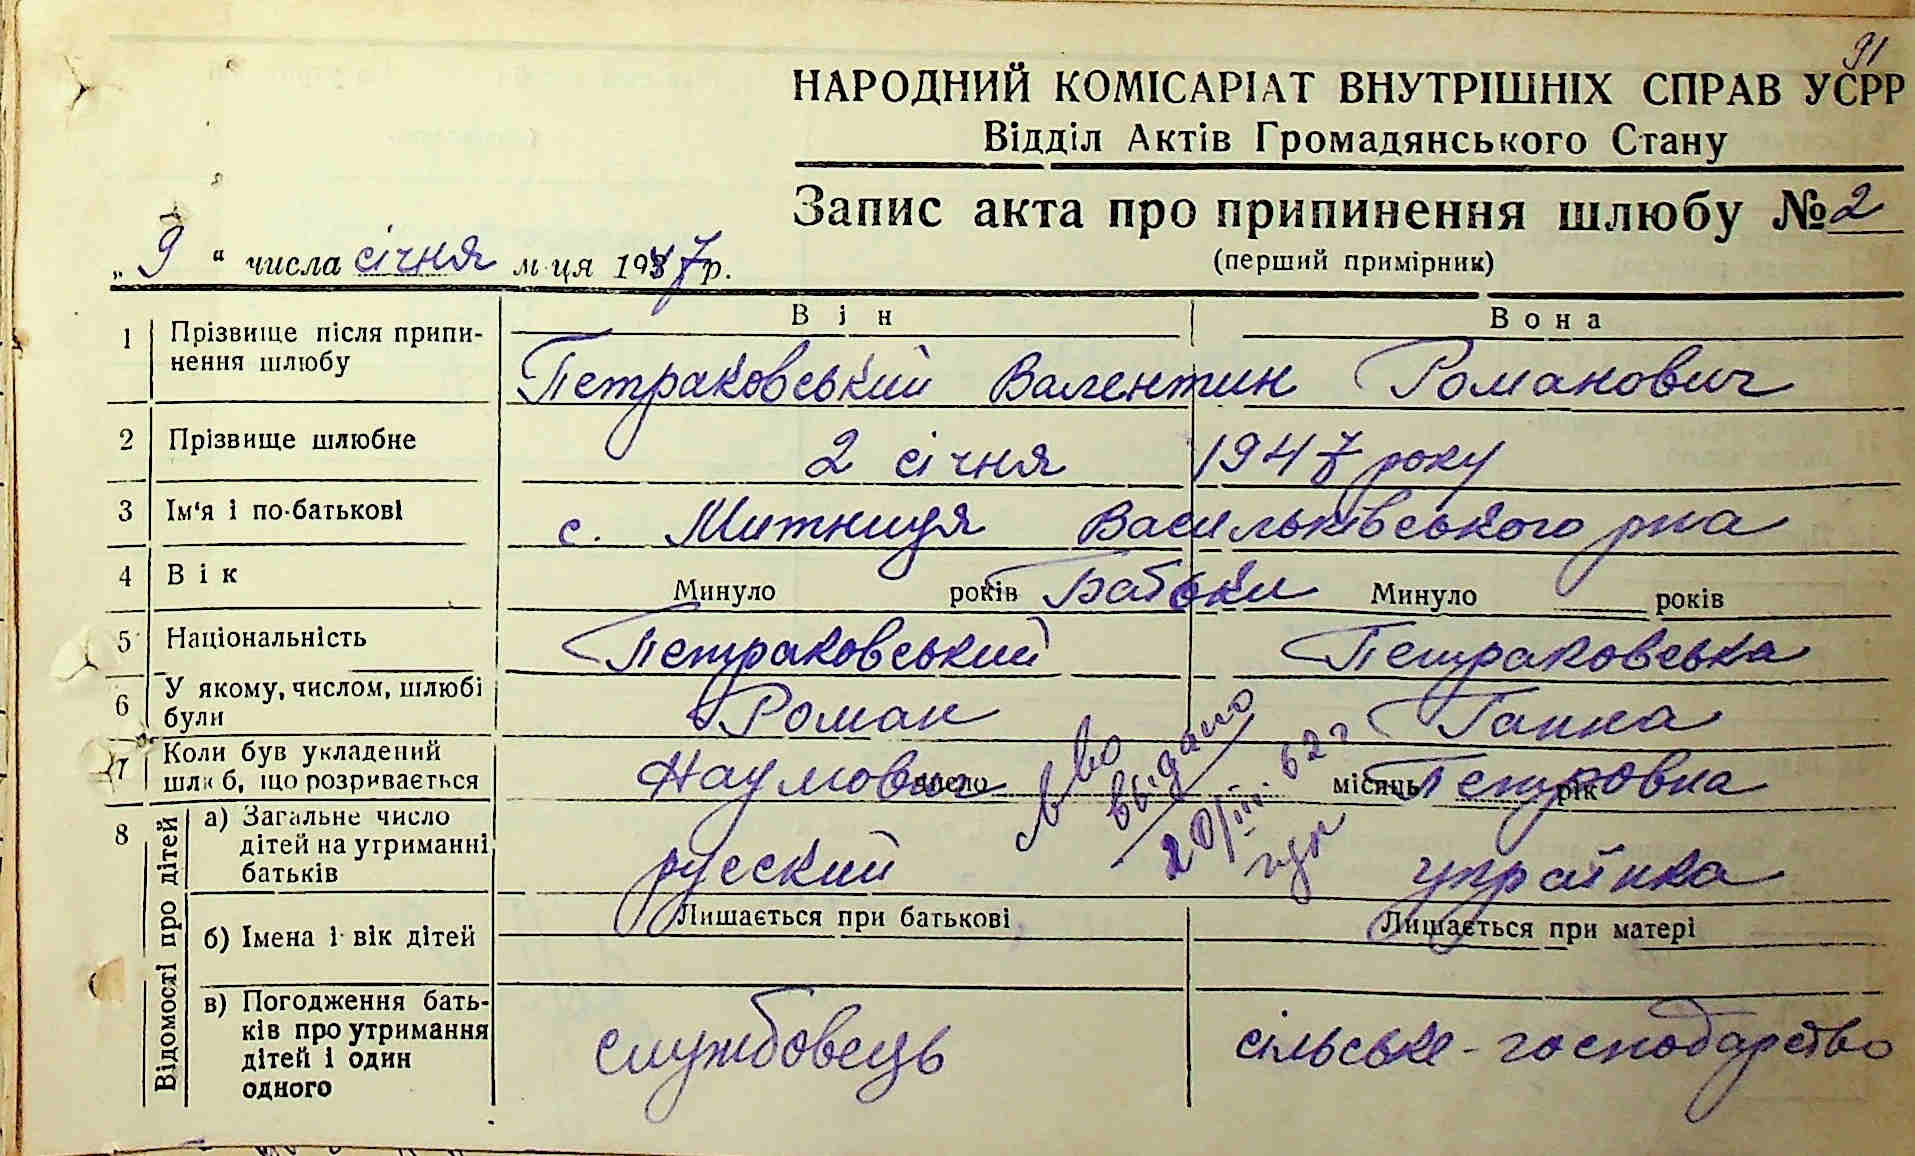 91
НАРОДНИЙ КОМІСАРІАТ ВНУТРІШНІХ СПРАВ УСРР
Відділ Актів Громадянського Стану
Запис акта про припинення шлюбу № 2
(перший примірник)
„ 9 “ числа січня м-ця 1947 р.
Він Вона
1 Прізвище після припи-
нення шлюбу
Петраковський Валентин Романович
2 Прізвище шлюбне
2 січня 1947 року
3 Ім'я і по-батькові
с. Митниця Васильківського рна
4 Вік
Минуло років Батьки Минуло років
5 Національність
Петраковський Петраковська
6 У якому, числом, шлюбі
були
Роман Ганна
7 Коли був укладений
шлюб, що розривається
Наумович число місяць Петровна рік
св во
выдано
20/III. 62 г
8 Відомості про дітей
а) Загальне число
дітей на утриманні
батьків
русский украінка
б) Імена і вік дітей
Лишається при батькові Лишається при матері
в) Погодження бать-
ків про утримання
дітей і один
одного
службовець сільське-господарство